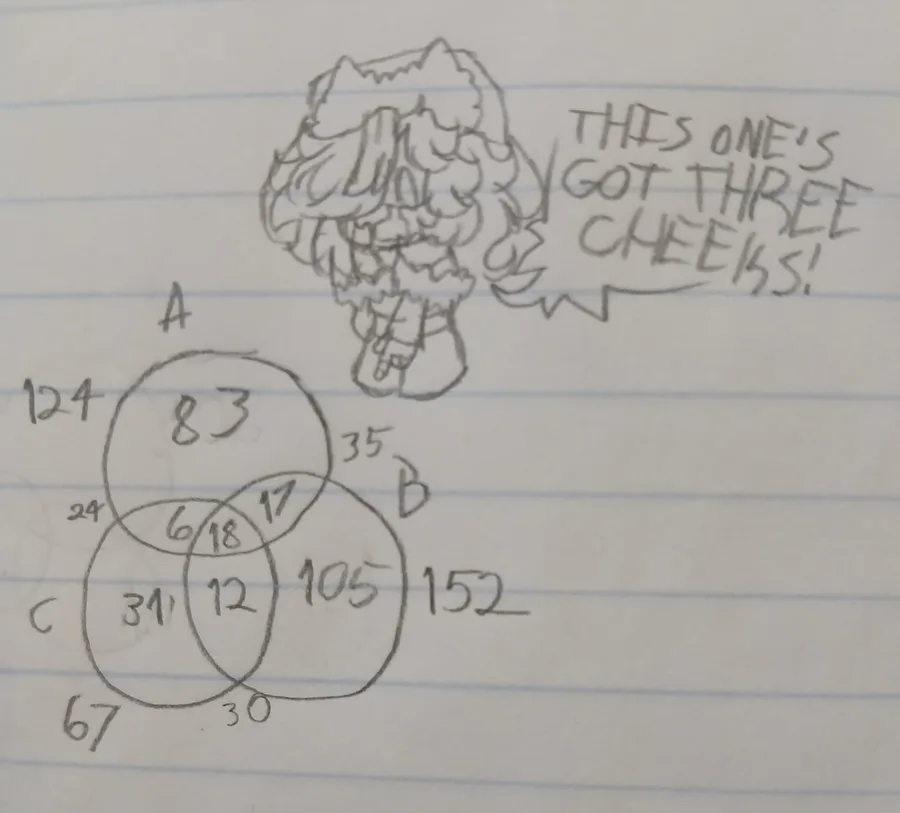 THIS ONE'S
GOT THREE
CHEEKS!
A
124
83
35
B
24
6
18
17
C
31
12
105
152
67
30